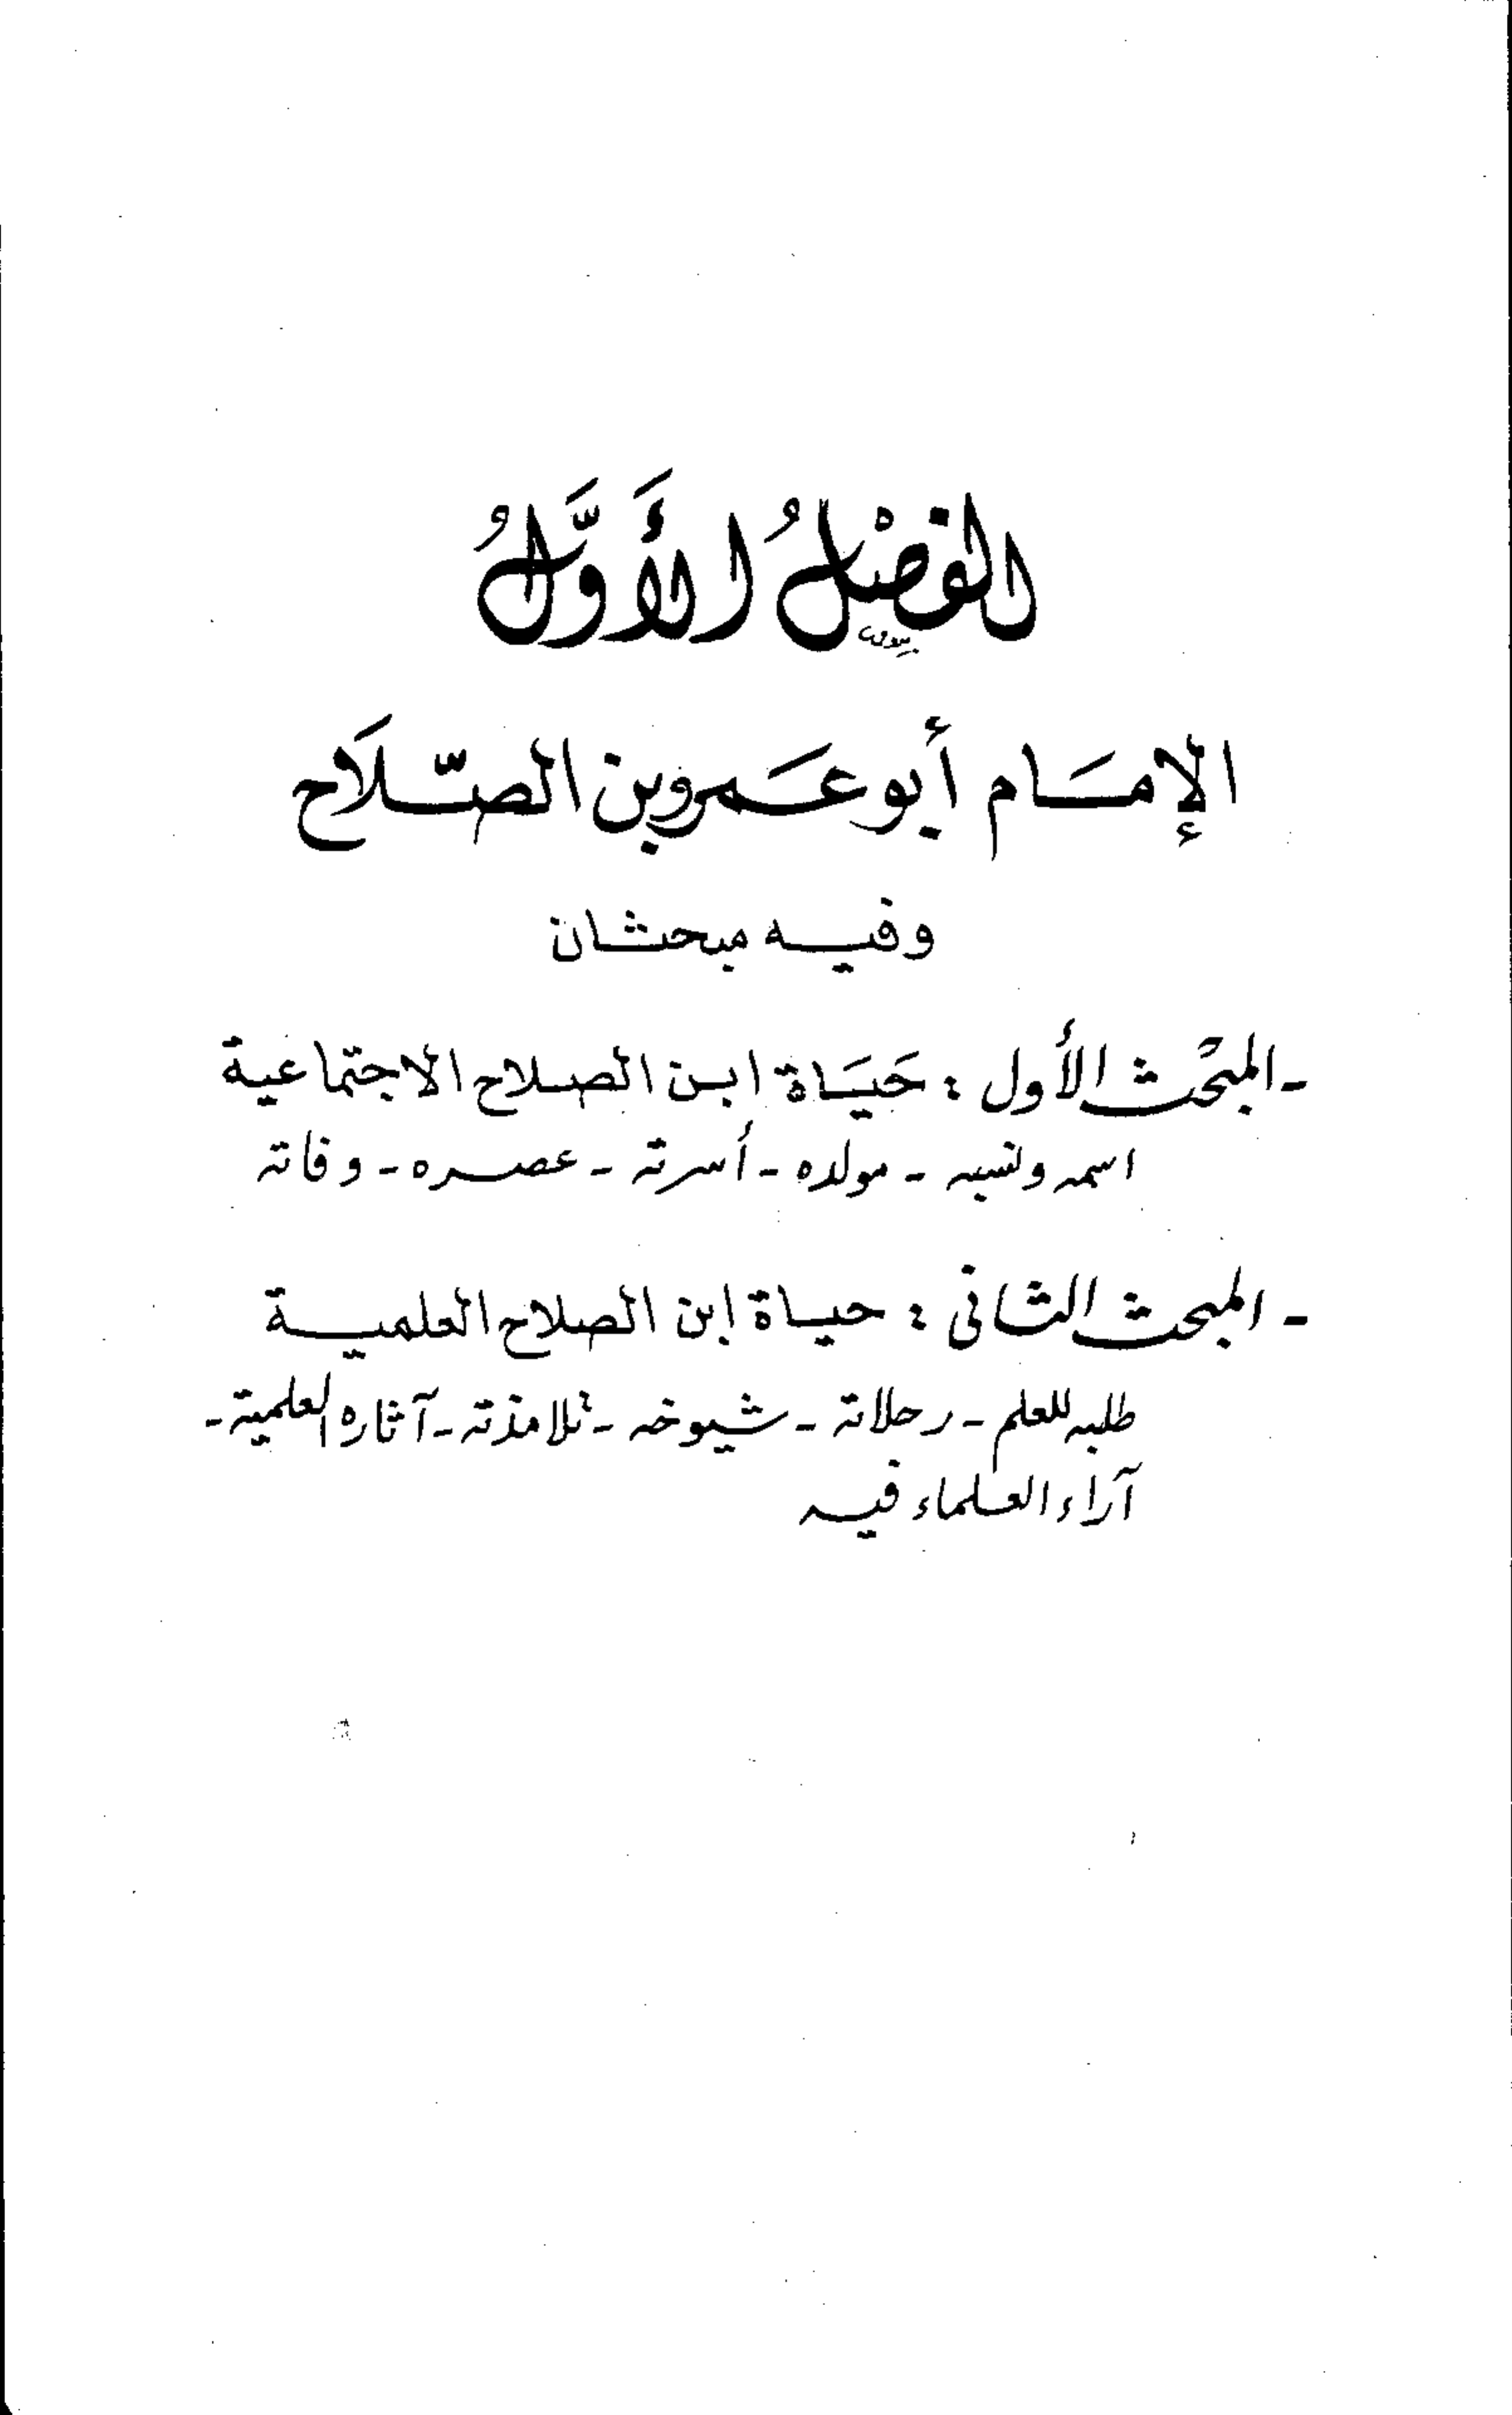 الفَصْلُ الأَوَّلُ
الإمَام أبو عَمرو بن الصّلَاح
وفيه مبحثان
- المبْحث الأول : حَيَاة ابن الصلاح الاجتماعية
اسمه ونسبه - مولده - أسرته - عصره - وفاته
- المبحث الثاني : حياة ابن الصلاح العلمية
طلبه للعلم - رحلاته - شيوخه - تلامذته - آثاره العلمية -
آراء العلماء فيه